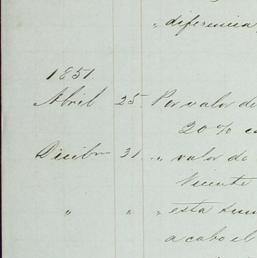 " diferencia
1851
Abril 25 Por valor de
20% en
Dicibre 31 " valor do
Vicente
" " " esta sum
a cabo el